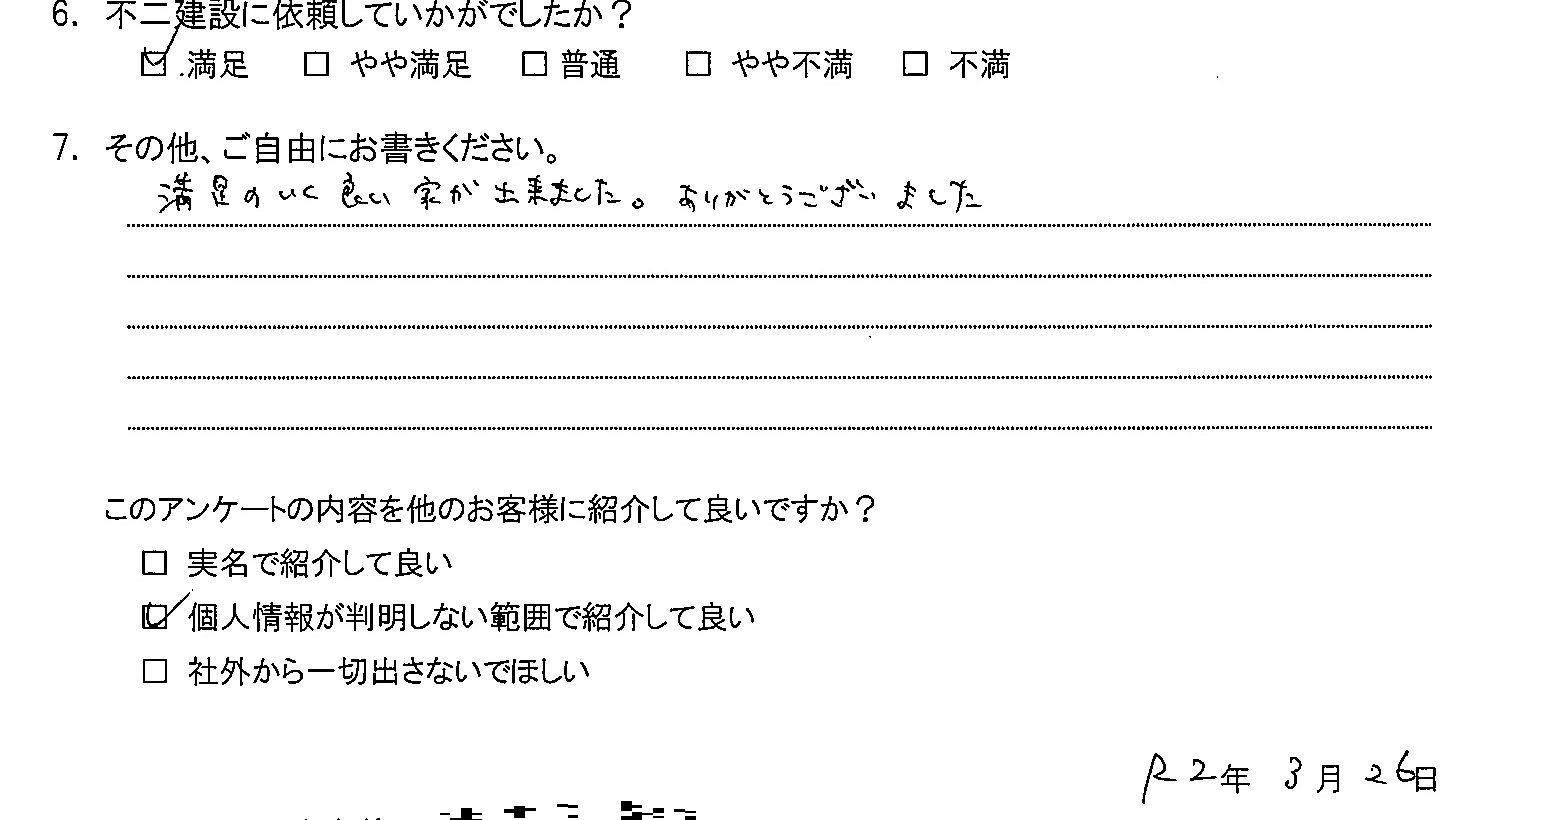 6. 不二建設に依頼していかがでしたか？
☑ 満足 □ やや満足 □ 普通 □ やや不満 □ 不満
7. その他、ご自由にお書きください。
満足のいく良い家が出来ました。ありがとうございました
このアンケートの内容を他のお客様に紹介して良いですか？
□ 実名で紹介して良い
☑ 個人情報が判明しない範囲で紹介して良い
□ 社外から一切出さないでほしい
R2年 3月 26日